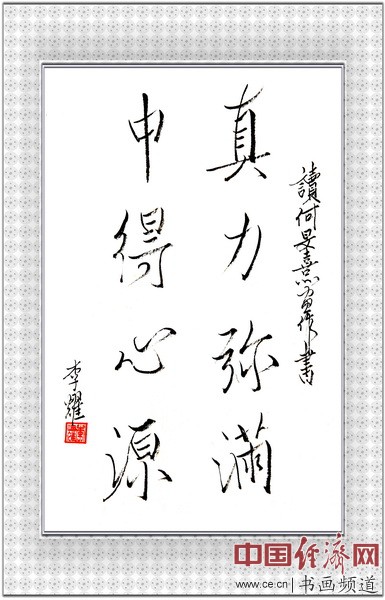 讀何昊熹
書
真力弥满
中得心源
李耀
中国经济网
www.ce.cn 书画频道